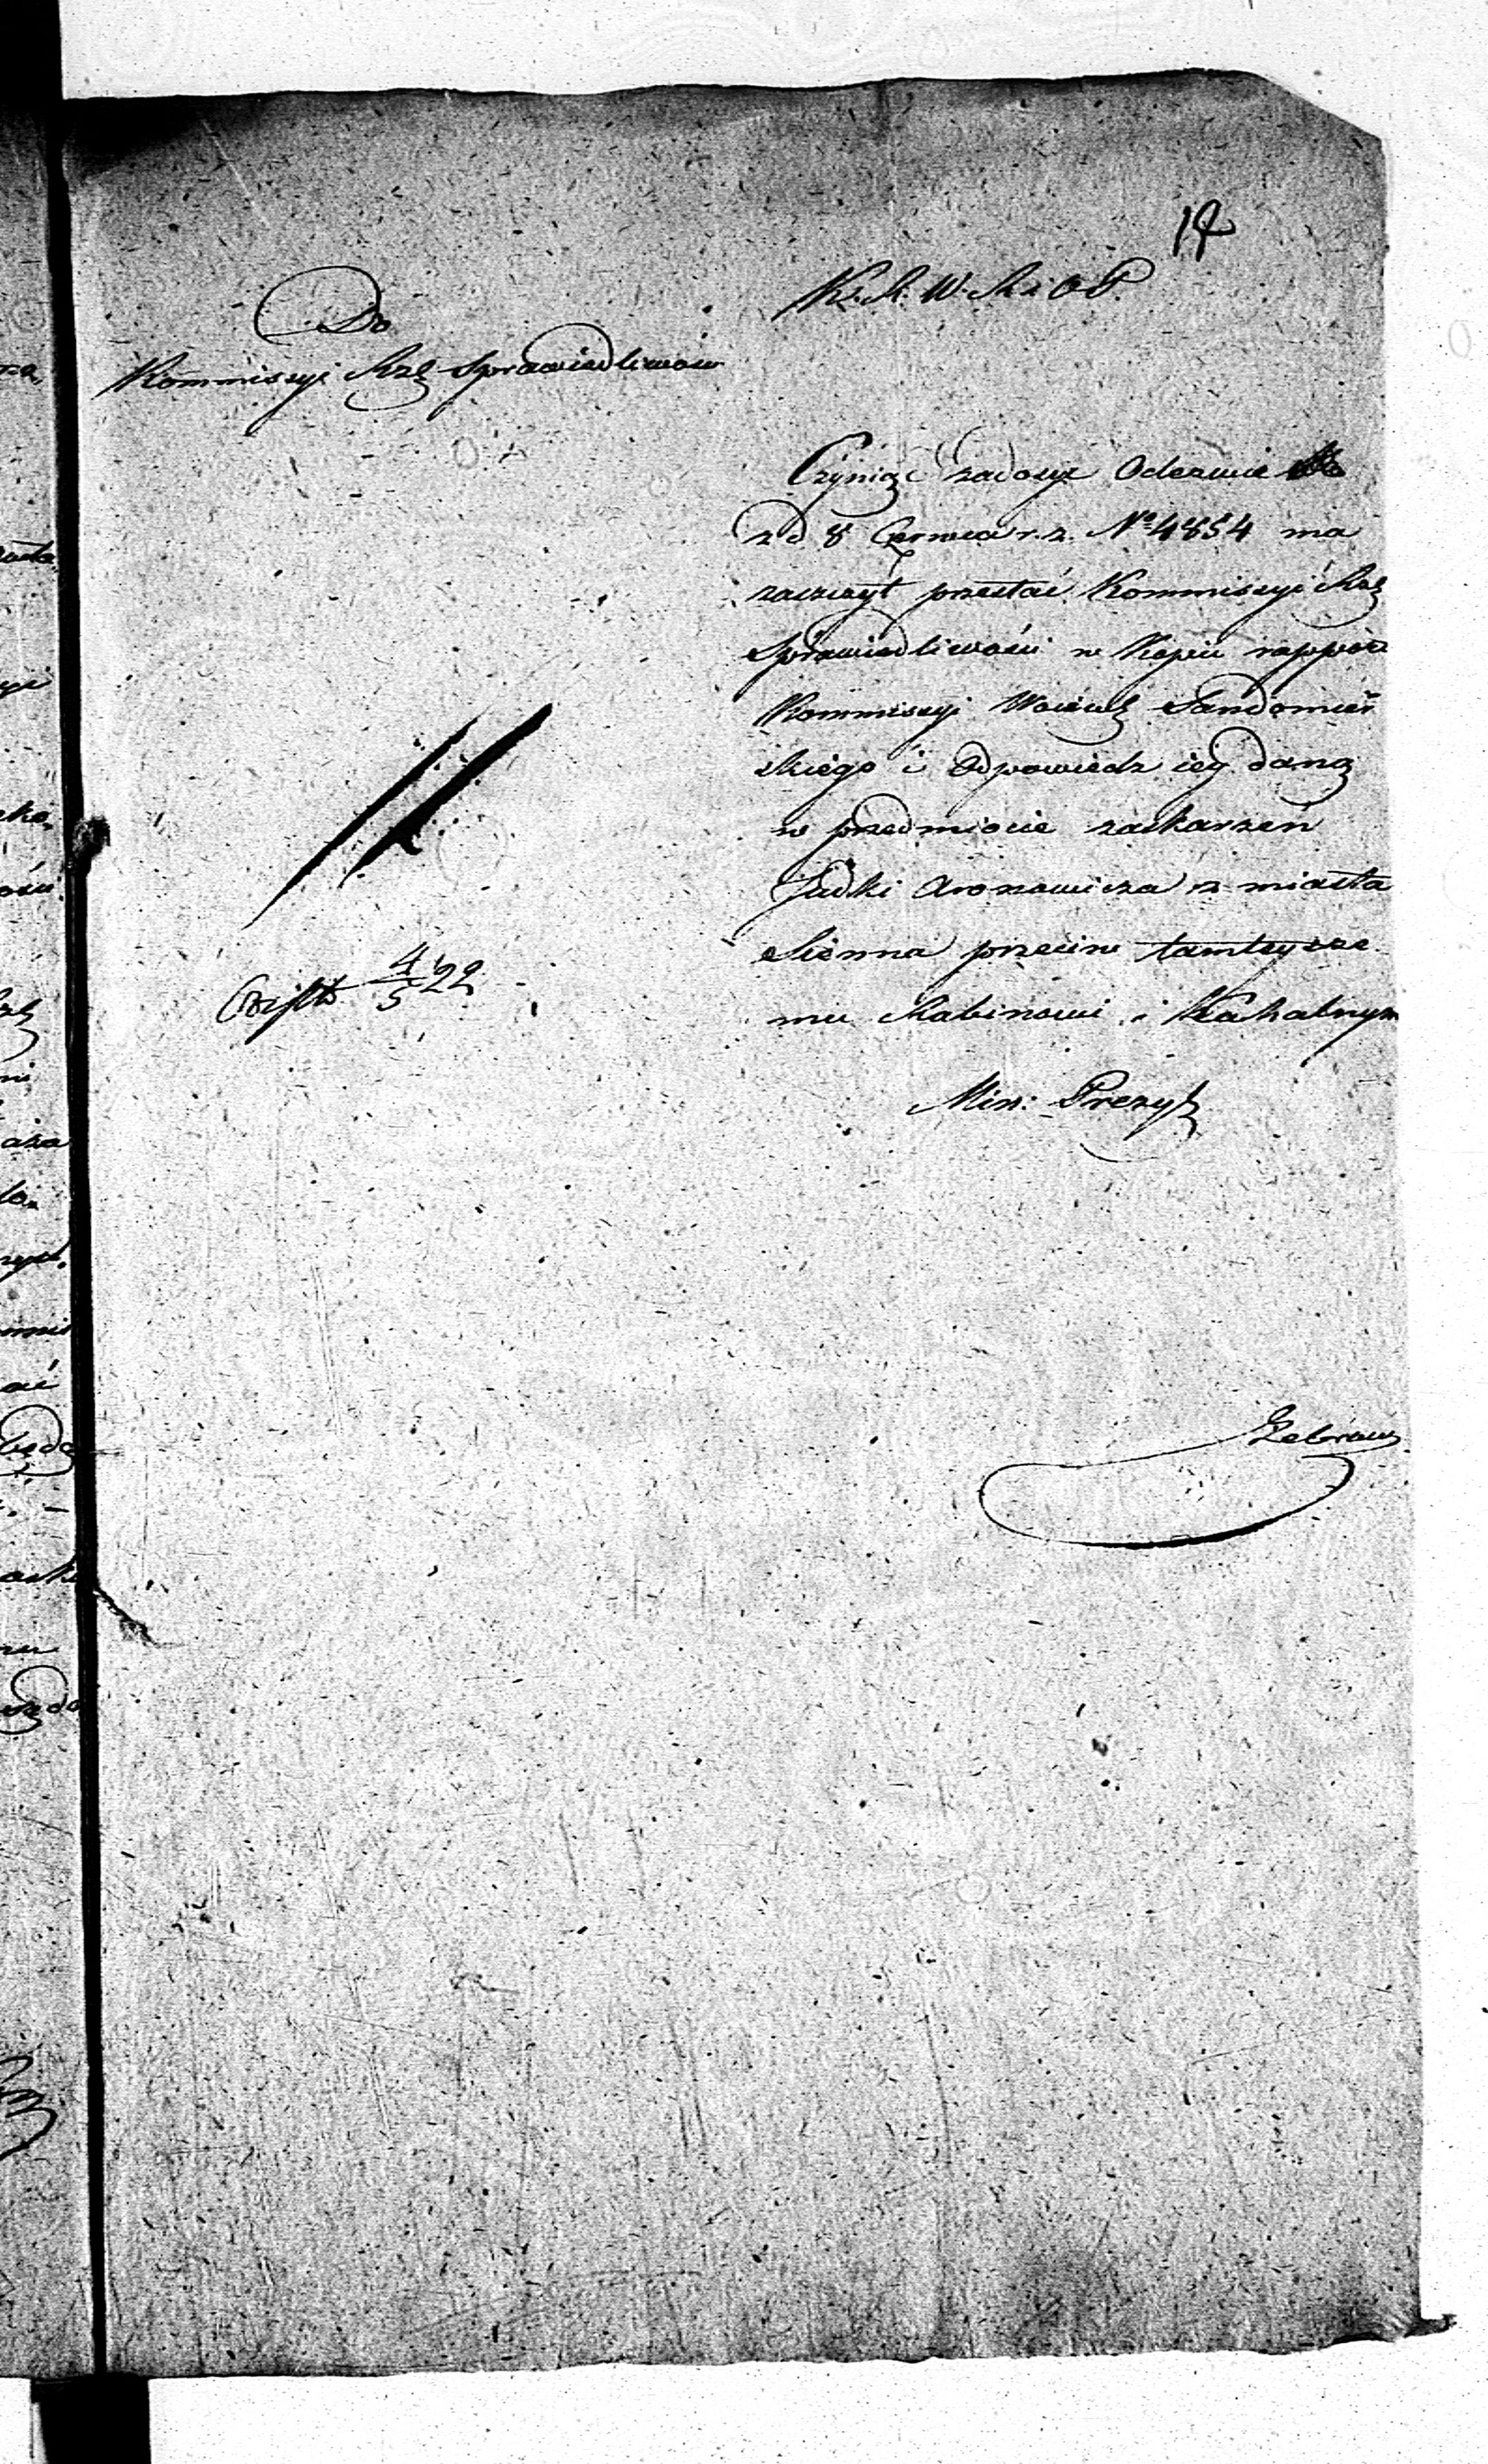 14
K. R. W. R. i O. P.
Do
Kommissyi Rzą Sprawiedliwow
Czyniąc zadosyć Odezwie
z d. 8 Czerwca r. z. No 4854 ma
zaszczyt przesłać Kommissyi Rzą
Sprawiedliwości w Kopii rapport
Kommissyi Woiewdz Sandomier
skiego i Odpowiedz iey daną
w przedmiocie zaskarzeń
Judki Aronowicza z miasta
Sienna przeciw tamteysze
mu Rabinowi i Kahalnym
4/5 22
Min: Prezyd
Zebrows